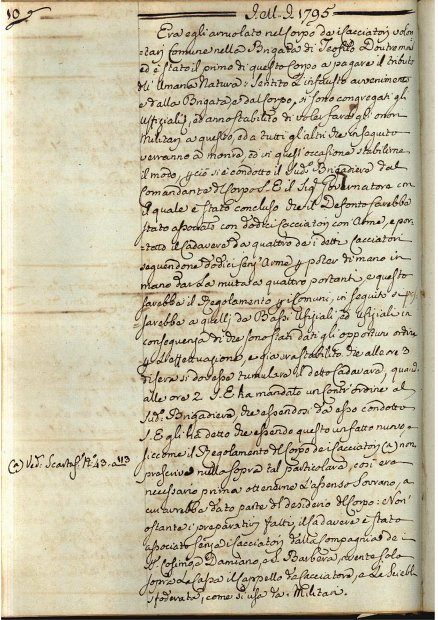 10
I.M.I. 1795
Era egli arruolato nel Corpo de i Cacciatori volon-
tari Comune nella Brigata di Teofilo Doutrema
ed è stato il primo di questo Corpo a pagare il tributo
all'Umana Natura: Sentito l'infausto avvenimento
e dalla Brigata, e dal Corpo, si sono congregati gli
Uffiziali, ed anno stabilito di voler fare gli onori
Militari a questo, ed a tutti gli altri che in seguito
verranno a morire, ed in quest'occasione stabilirne
il modo, e ciò si è condotto il sud.º Brigadiere dal
Comandante di Corpo S.E. il Sig.r Governatore con
il quale è stato concluso che il Defonto sarebbe
stato associato con dodici Cacciatori con Arme, e por-
tato il Cadavere da quattro de i detti Cacciatori
seguendone dodici senz'Arme p poter di mano in
mano dar la muta a quattro portanti, e questo
sarebbe il Regolamento p i Comuni, in seguito
sarebbe a quelli da Bassi Uffiziali, ed Uffiziali in
conseguenza di che sono stati dati gli opportuni ordini
p l'effettuazione, e già era stabilito che alle ore 3
di sera si dovesse tumulare il detto Cadavara, quando
alle ore 2 S.E. ha mandato un contr'ordine al
sud.º Brigadiere che essendosi da esso condotto
S.E. gli ha detto che essendo questo un fatto nuovo e
siccome il Regolamento del Corpo de i Cacciatori (a) non
proscrive nulla sopra tal particolare, così era
necessario prima ottenerne l'assenso Sovrano, a
cui avrebbe dato parte del desiderio del Corpo: Non'
ostante i preparativi fatti, il Cadavere è stato
associato senza i Cacciatori dalla Compagnia de i
SS. Cosimo, e Damiano, e S. Barbera, avente solo
sopra la Cassa il Cappello da Cacciatore, e la Sciabla
sfoderata, come di uso da Militari.
(a) Ved. Scartaf. N.º 43. a 113